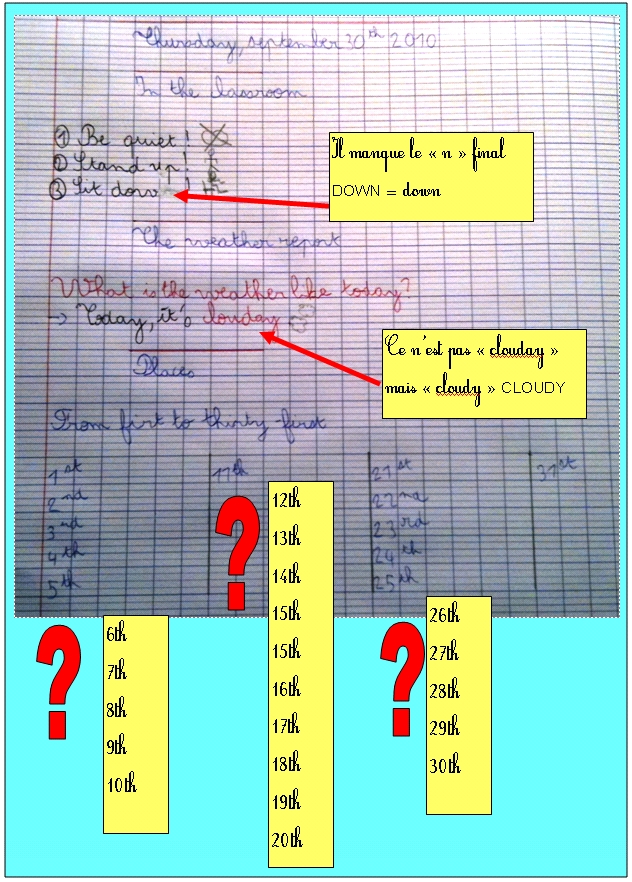 Thursday, september 30th 2010
In the classroom
① Be quiet!
② Stand up!
③ Sit dow !
Il manque le « n » final
DOWN = down
The weather report
What is the weather like today?
→ Today, it's clouday
Ce n'est pas « clouday »
mais « cloudy » CLOUDY
Places
From firt to thirty-first
1st 11th 21st 31st
2nd 22nd
3rd 23rd
4th 24th
5th 25th
6th
7th
8th
9th
10th
12th
13th
14th
15th
15th
16th
17th
18th
19th
20th
26th
27th
28th
29th
30th
? ? ?